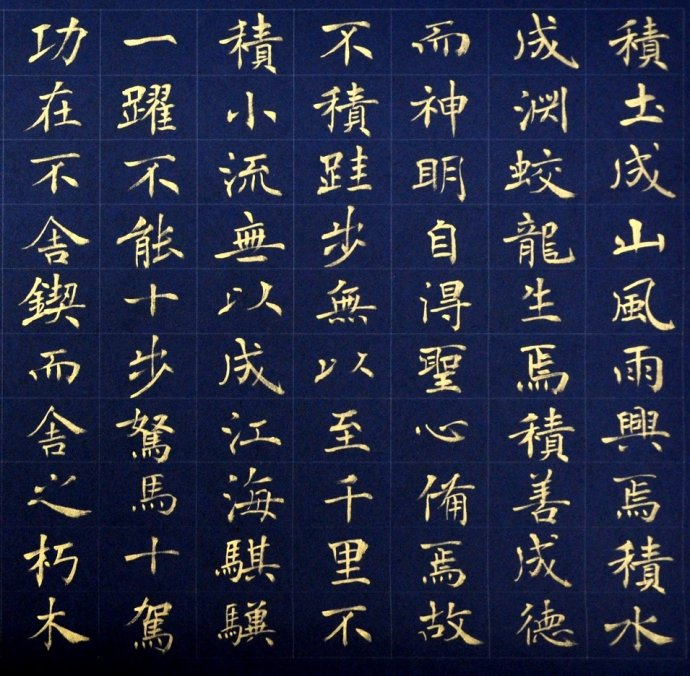 積土成山風雨興焉積水
成渊蛟龍生焉積善成德
而神明自得聖心備焉故
不積跬步無以至千里不
積小流無以成江海騏驥
一躍不能十步駑馬十駕
功在不舍鍥而舍之朽木